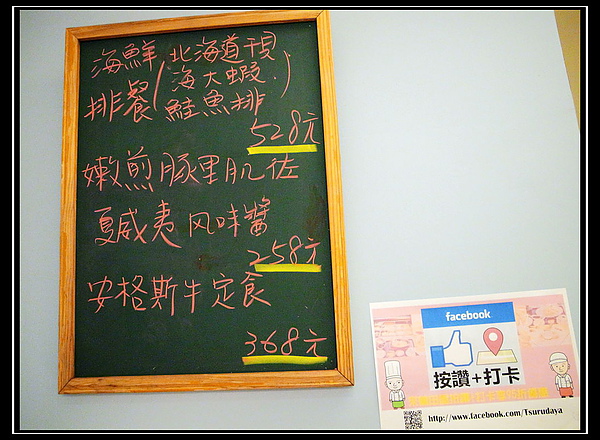 海鮮 北海道干貝
排餐(海大蝦.)
鮭魚排
528元
嫩煎豚里肌佐
夏威夷风味醬
258元
安格斯牛定食
368元
facebook
按讚+打卡
http://www.facebook.com/Tsurudaya